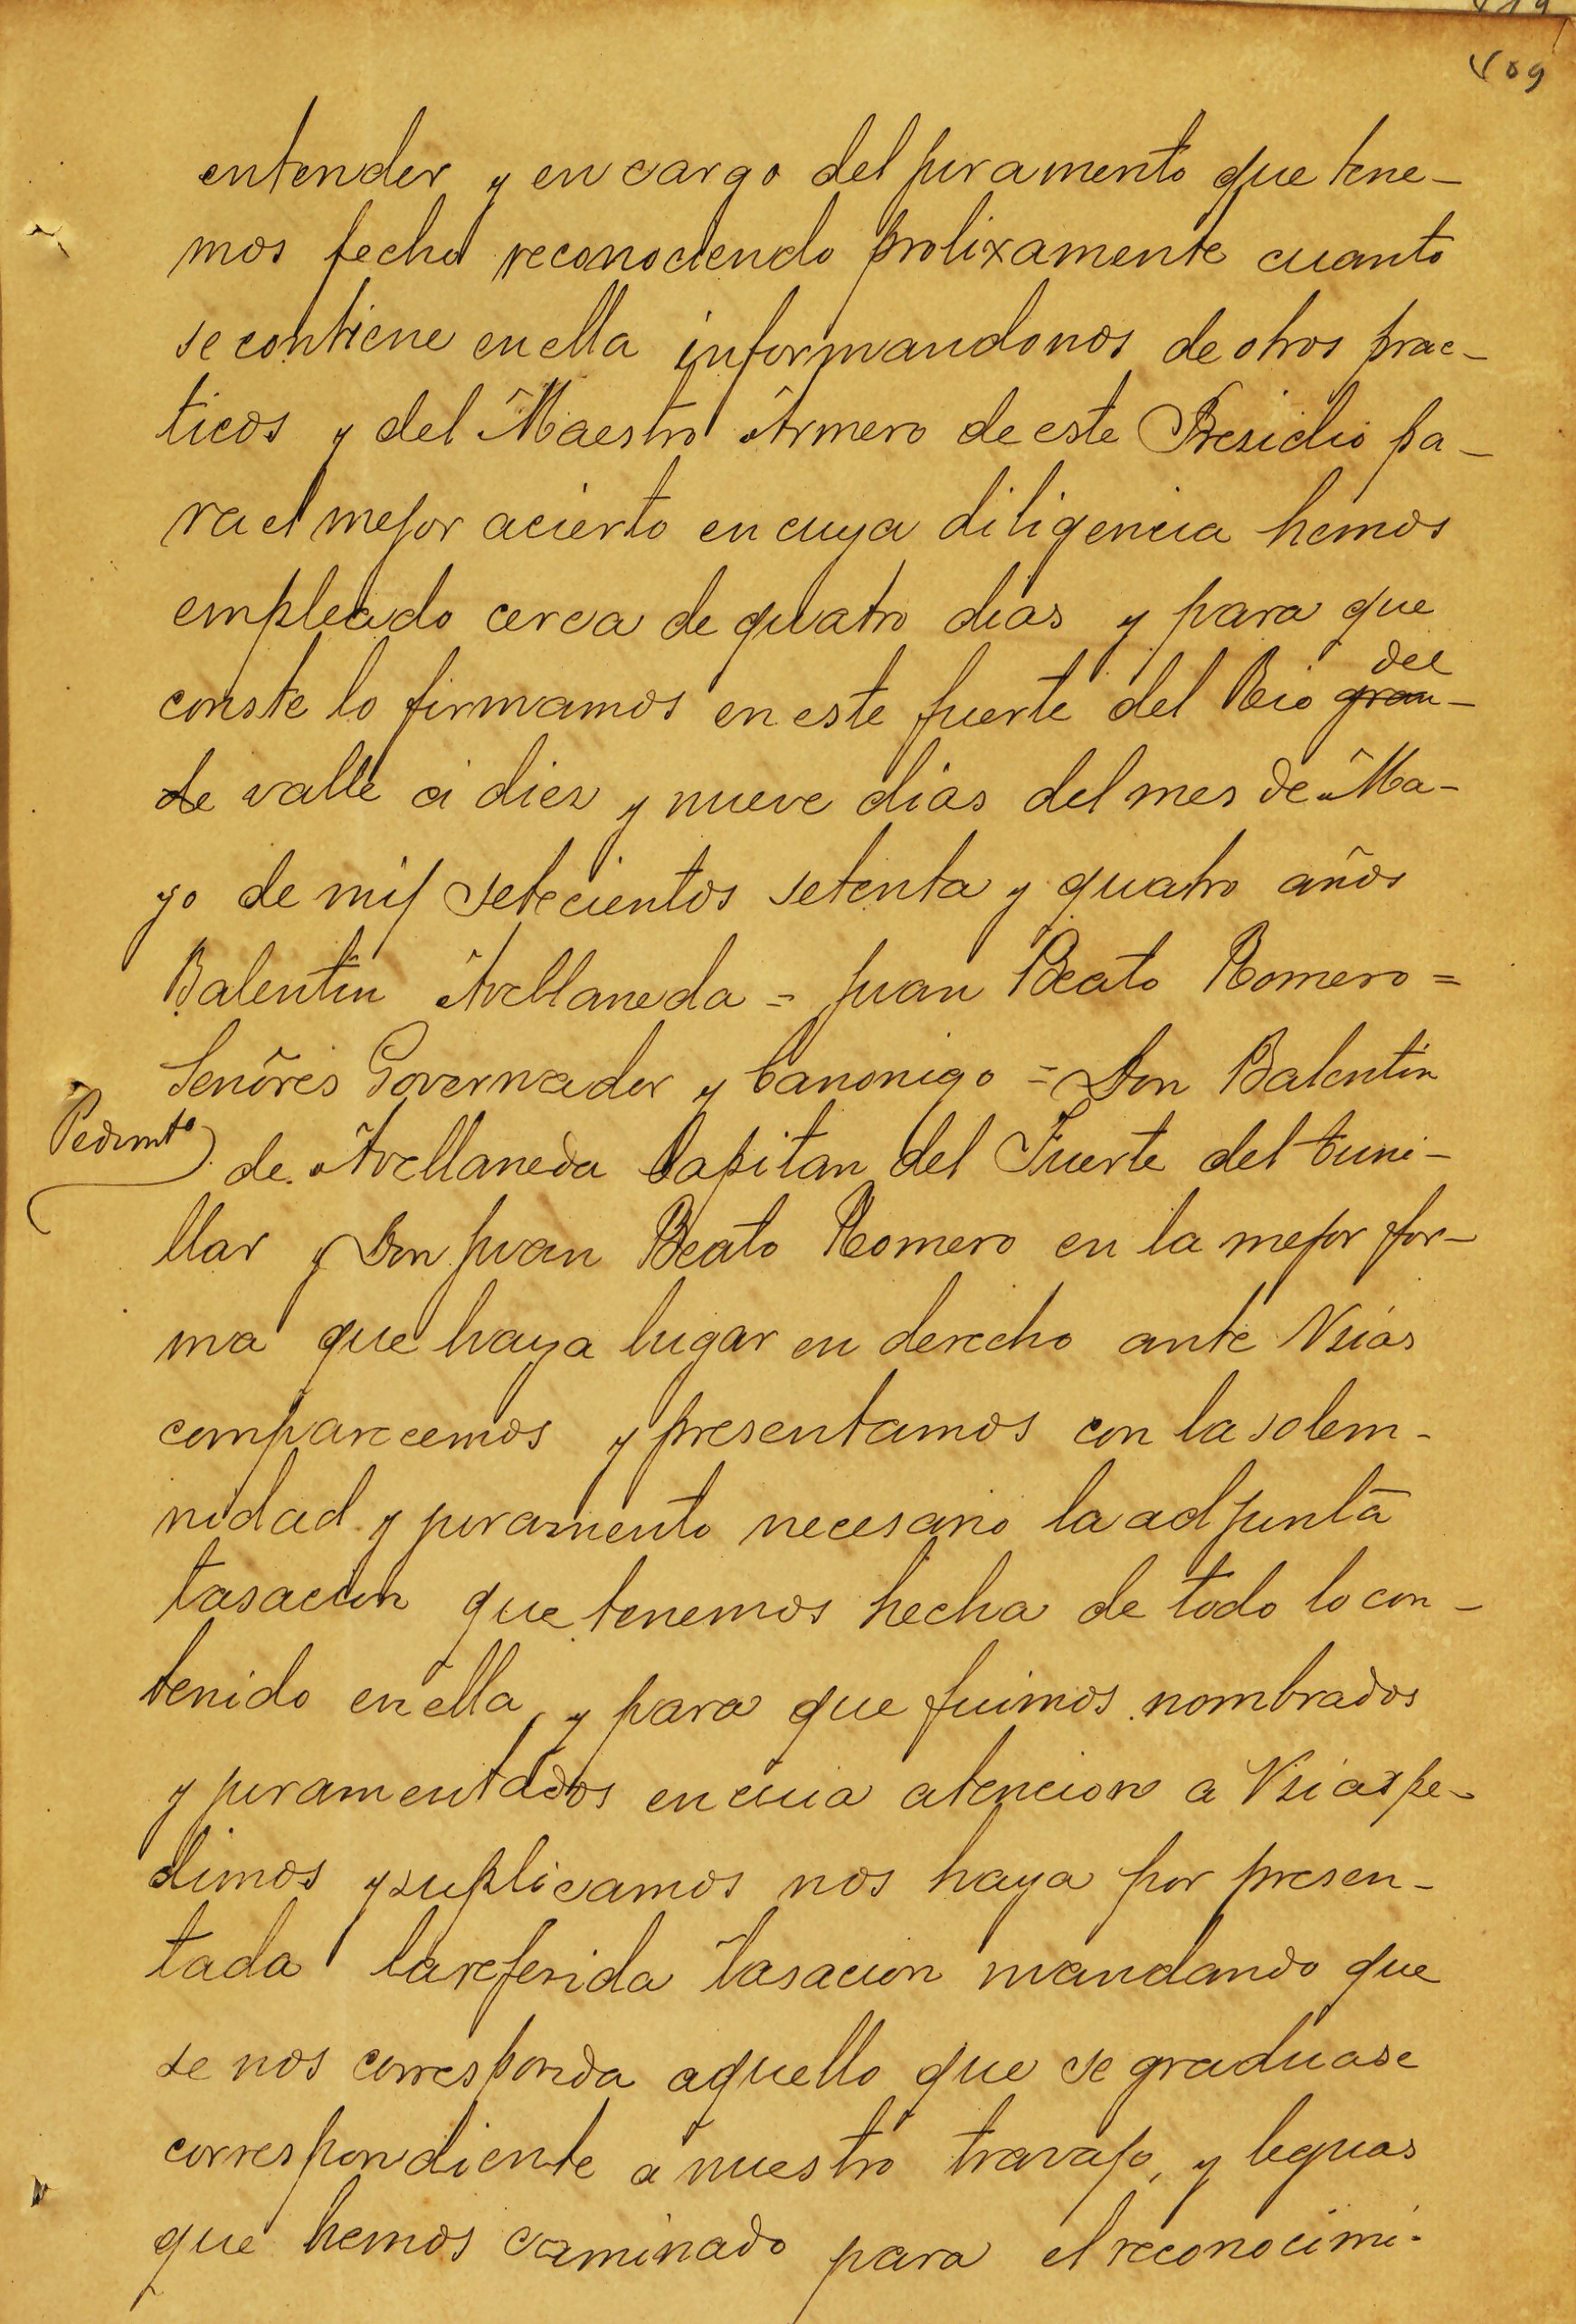 409
entender y en cargo del juramento que tene-
mos fecho reconociendo prolixamente cuanto
se contiene en ella informandonos de otros prac-
ticos y del Maestro Armero de este Presidio pa-
ra el mejor acierto en cuya diligencia hemos
empleado cerca de quatro dias y para que
del
conste lo firmamos en este fuerte del Rio gran-
de valle á diez y nueve dias del mes de Ma-
yo de mil setecientos setenta y quatro años
Balentin Avellaneda = Juan Beato Romero =
Señores Governador y Canonigo = Don Balentin
Pedimto
de Avellaneda Capitan del Fuerte del tuni-
llar y Don Juan Beato Romero en la mejor for-
ma que haya lugar en derecho ante Vsias
comparecemos y presentamos con la solem-
nidad y juramento necesario la adjunta
tasacion que tenemos hecha de todo lo con-
tenido en ella, y para que fuimos nombrados
y juramentados en cuia atencion a Vsias pe-
dimos y suplicamos nos haya por presen-
tada la referida tasacion mandando que
se nos corresponda aquello que se graduase
correspondiente a nuestro travajo, y leguas
que hemos caminado para el reconocimi-